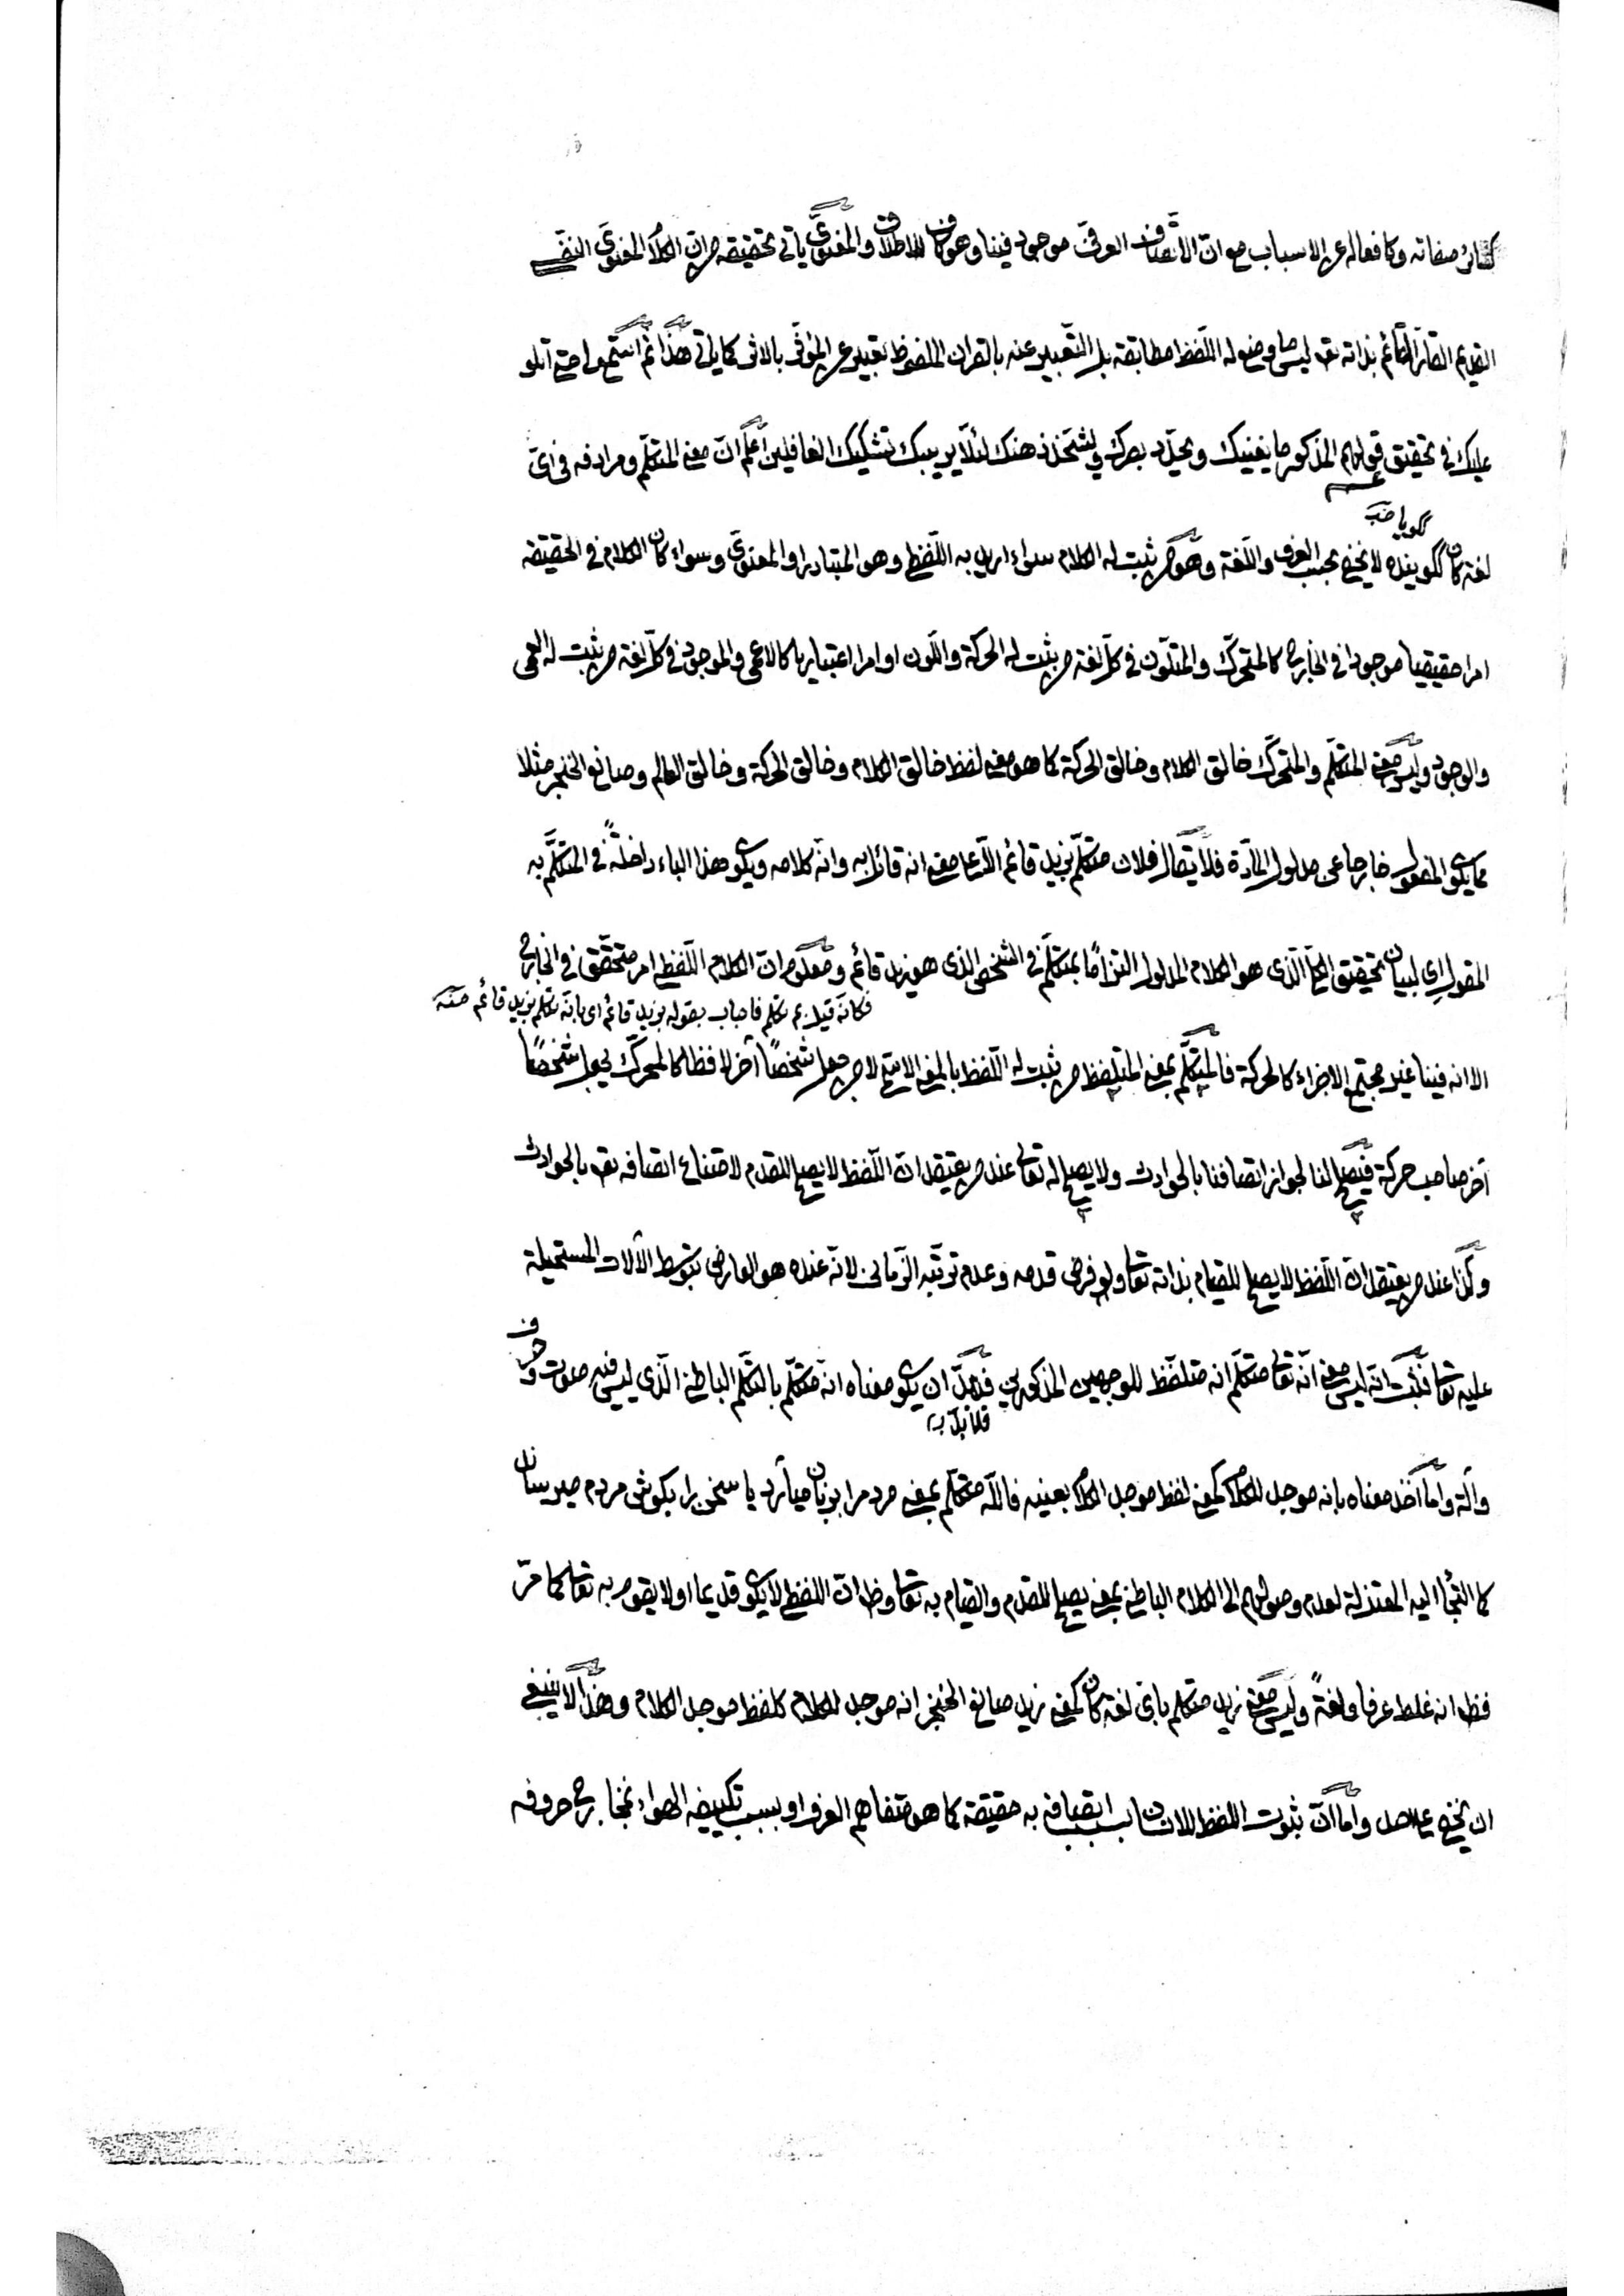 كسائر صفاته وكافعاله عن الاسباب مع ان الاتصاف العرفى موجود فينا وهو كاف للاطلاق والمعنوى ياتى تحقيقه من ان الكلام المعنوى النفسى
القديم القائم بذاته تعه ليس ما وضع له اللفظ مطابقة بل التعبير عنه بالقران الملفوظ تعبير عن المؤثر بالاثر كما ياتى هذا ثم استمع لى حتى اتلو
عليك فى تحقيق قولهم المذكور ما يغنيك ويحدد بصرك ويشحذ ذهنك لئلا يريبك تشكيك الغافلين اعلم ان معنى المتكلم ومرادفه فى اى
گويا صب
لغة كان كگوينده لا يخرج بحسب العرف واللغة وهو من يثبت له الكلام سواء اريد به اللفظى وهو المتبادر او المعنوى وسواء كان الكلام فى الحقيقة
امرا حقيقيا موجودا فى الخارج كالمتحرك والمتلون فى كل لغة من يثبت له الحركة واللون او امرا اعتباريا كالاعمى والموجود فى كل لغة من يثبت له العمى
والوجود وليس معنى المتكلم والمتحرك خالق الكلام وخالق الحركة كما هو معنى لفظ خالق الكلام وخالق الحركة وخالق العالم وصانع الخنجر مثلا
مما يكون المفعول خارجا عن مدلول المادة فلا يقال فلان متكلم بزيد قائم الا على معنى انه قائل به وانه كلامه ويكون هذا الباء داخلة فى المتكلم به
المقول اى لبيان تحقيق الكلام الذى هو الكلام المدلول التزاما بمتكلم فى الشخص الذى هو زيد قائم ومعلوم ان الكلام اللفظى امر متحقق فى الخارج
فكانه قيل بم تكلم فاجاب بقوله بزيد قائم اى بانه تكلم بزيد قائم منه
الا انه فينا غير مجتمع الاجزاء كالحركة فالمتكلم بمعنى المتلفظ من يثبت له اللفظ بالمعنى الاسمى لا من جعل شخصا آخر لافظا كالمحرك يجعل شخصا
آخر صاحب حركة فيصح لنا لجواز اتصافنا بالحوادث ولا يصح له تعالى عند من يعتقد ان اللفظ لا يصح للقدم لامتناع اتصافه تعه بالحوادث
وكذا عند من يعتقد ان اللفظ لا يصح للقيام بذاته تعالى ولو فرض قدمه وعدم ترتبه الزمانى لانه عنده هو العارض بتوسط الآلات المستحيلة
عليه تعالى فثبت انه ليس معنى انه تعالى متكلم انه متلفظ للوجهين المذكورين فلابد ان يكون معناه انه متكلم بالتكلم الباطنى الذى ليس فيه صوت وحرف
فلا بد ب
وآلة واما اخذ معناه بانه موجد للكلام كمعنى لفظ موجد الكلام بعينه فالله متكلم بمعنى مردم را بزبان مياآرد يا سخن را بگوش مردم ميرساند
كما التجأ اليه المعتزلة لعدم وصولهم الى الكلام الباطنى بمعنى يصح للقدم والقيام به تعالى وظن ان اللفظى لا يكون قديما او لا يقوم به تعالى كما مر
فظ انه غلط عرفا ولغة وليس معنى زيد متكلم باى لغة كان كمعنى زيد صانع الخنجر انه موجد للكلام كلفظ موجد الكلام وهذا لا ينبغى
ان يخفى على احد واما ان ثبوت اللفظ للانسان بسبب اتصافه به حقيقة كما هو متفاهم العرف او بسبب تكييفه الهواء بمخارج حروفه